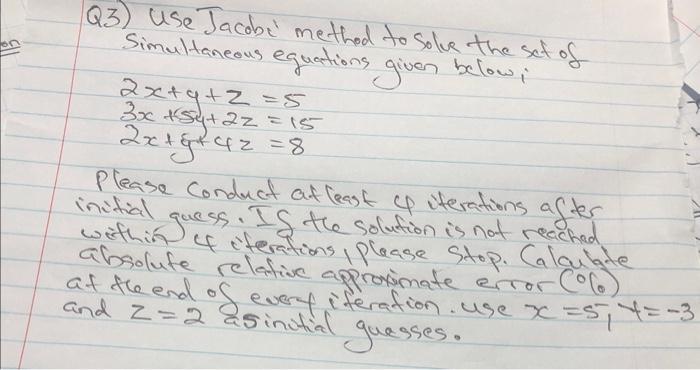 on
Q3) Use Jacobi method to solve the set of
Simultaneous equations given below;
2x+y+z=5
3x+5y+2z=15
2x+y+4z=8
Please conduct at least 4 iterations after
initial guess. If the solution is not reached
within 4 iterations, please stop. Calculate
absolute relative approximate error (%)
at the end of every iteration. use x=5, y=-3
and z=2 as initial guesses.